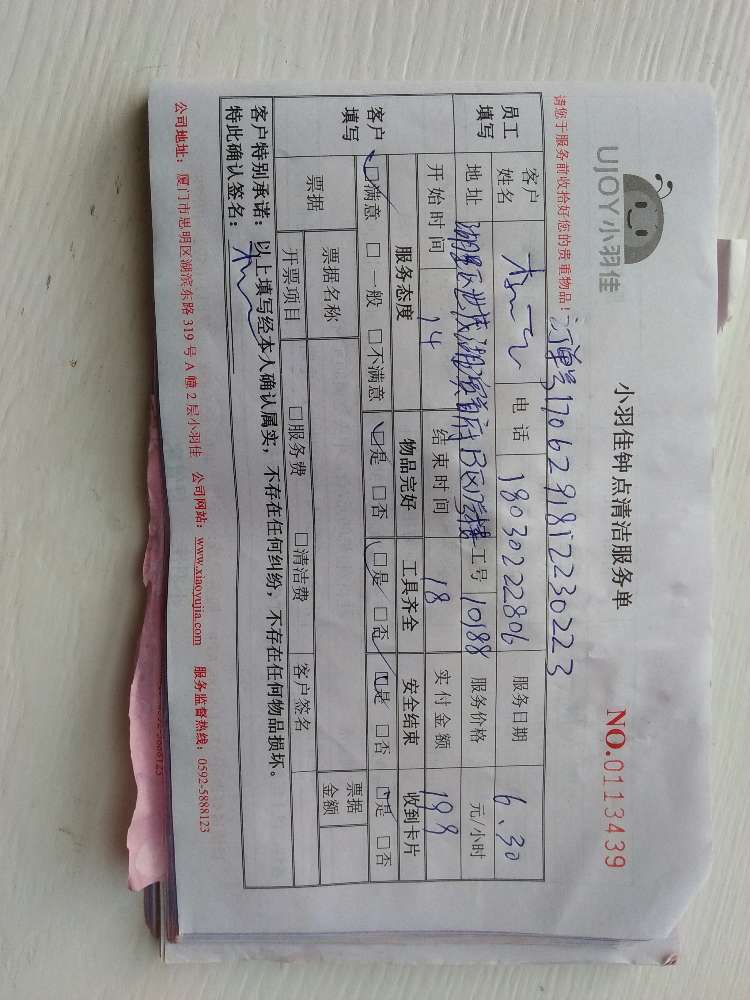 UJOY小羽佳
小羽佳钟点清洁服务单
NO.0113439
请您于服务前收拾好您的贵重物品!
订单号1706291812230223
员工填写
客户姓名
电话 18030222806
服务日期 6.30
地址
工号 10188
服务价格 元/小时
开始时间 14
结束时间 18
实付金额 198
客户填写
服务态度 物品完好 工具齐全 安全结束 收到卡片
□满意 □一般 □不满意 □是 □否 □是 □否 □是 □否 □是 □否
票据 票据名称 票据金额
开票项目 □服务费 □清洁费 客户签名
客户特别承诺：以上填写经本人确认属实，不存在任何纠纷，不存在任何物品损坏。
特此确认签名：
公司地址：厦门市思明区湖滨东路319号A幢2层小羽佳 公司网站：www.xiaoyujia.com 服务监督热线：0592-5888123